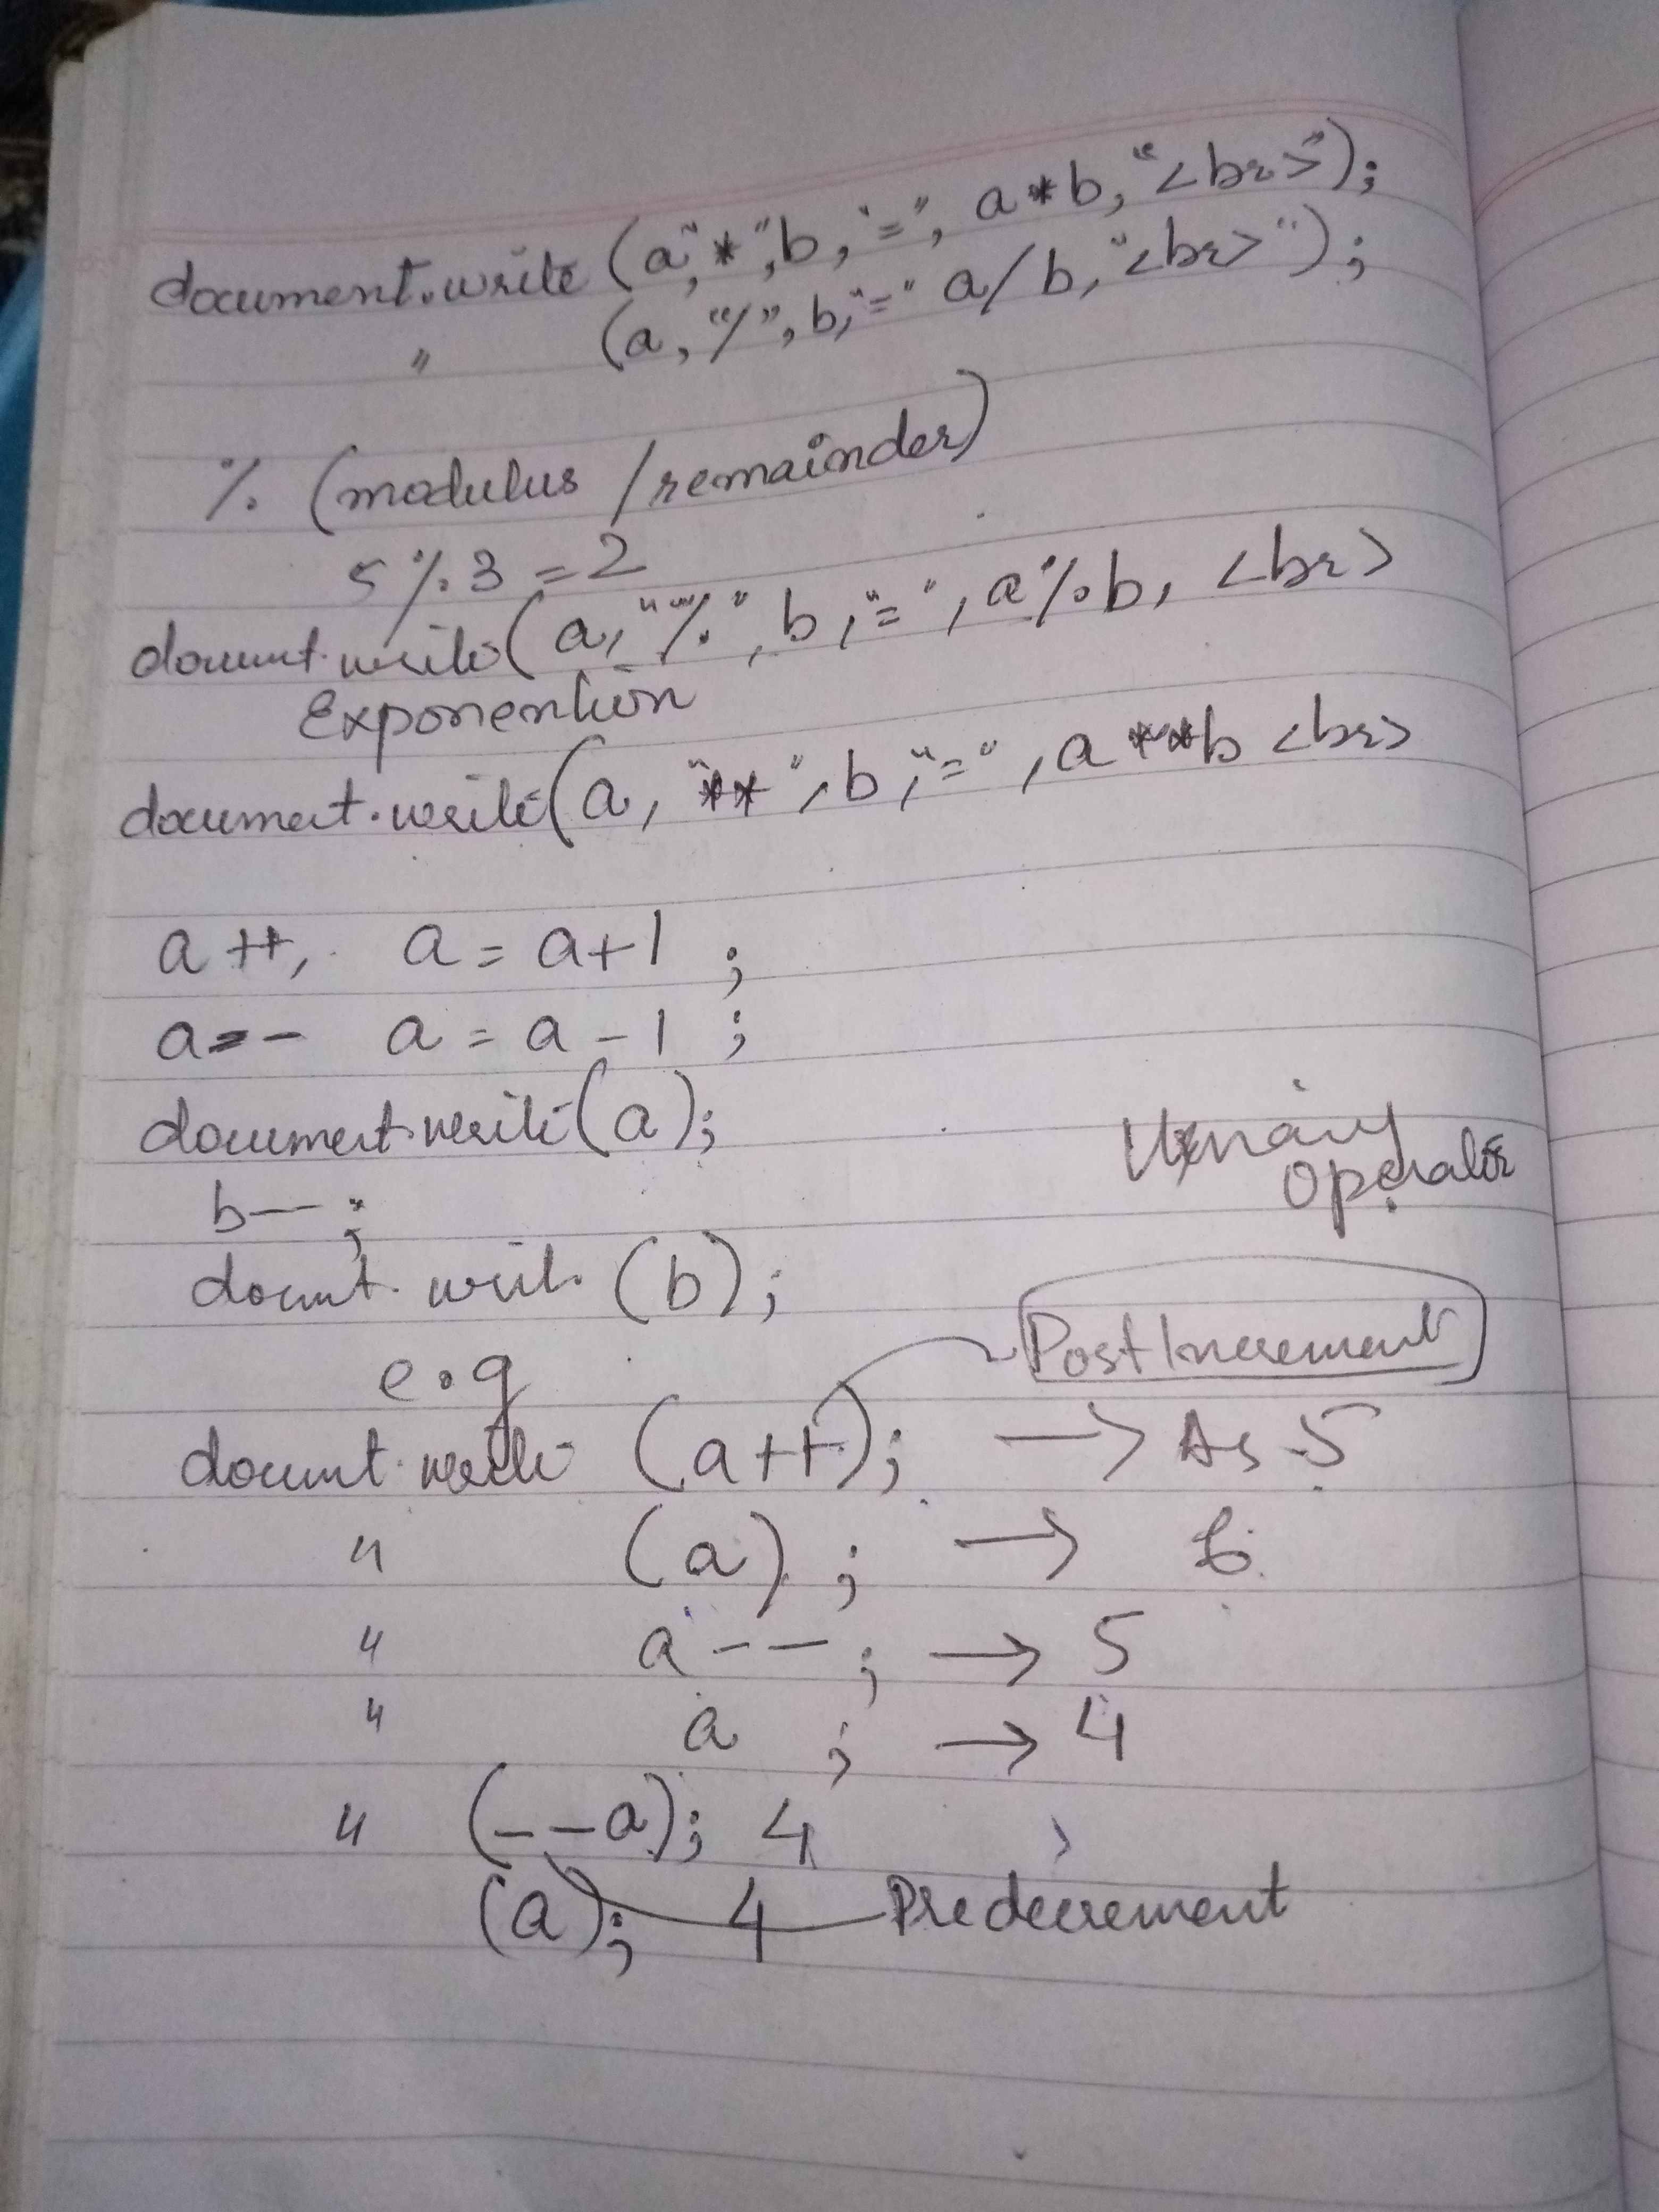 document.write (a,"*",b,"=", a*b,"<br>");
" (a, "/", b,"=" a/b,"<br>");
% (modulus /remainder)
5 % 3 = 2
documt.write(a, "%", b,"=", a%b, <br>
Exponention
document.write(a, "**", b,"=", a**b <br>
a++, a = a+1 ;
a-- a = a - 1 ;
document.write(a);
Unary
operator
b-- ;
documt. writ. (b);
e.g
Post Increment
documt.write (a++); → As 5
" (a) ; → 6
" a-- ; → 5
" a ; → 4
" (--a); 4
(a); 4 Pre decrement